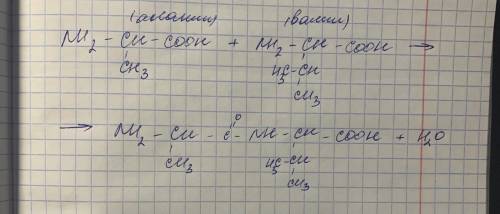 (аланин) (валин)
NH2 - CH - COOH + NH2 - CH - COOH →
CH3 H3C - CH
CH3
→ NH2 - CH - C - NH - CH - COOH + H2O
O
CH3 H3C - CH
CH3